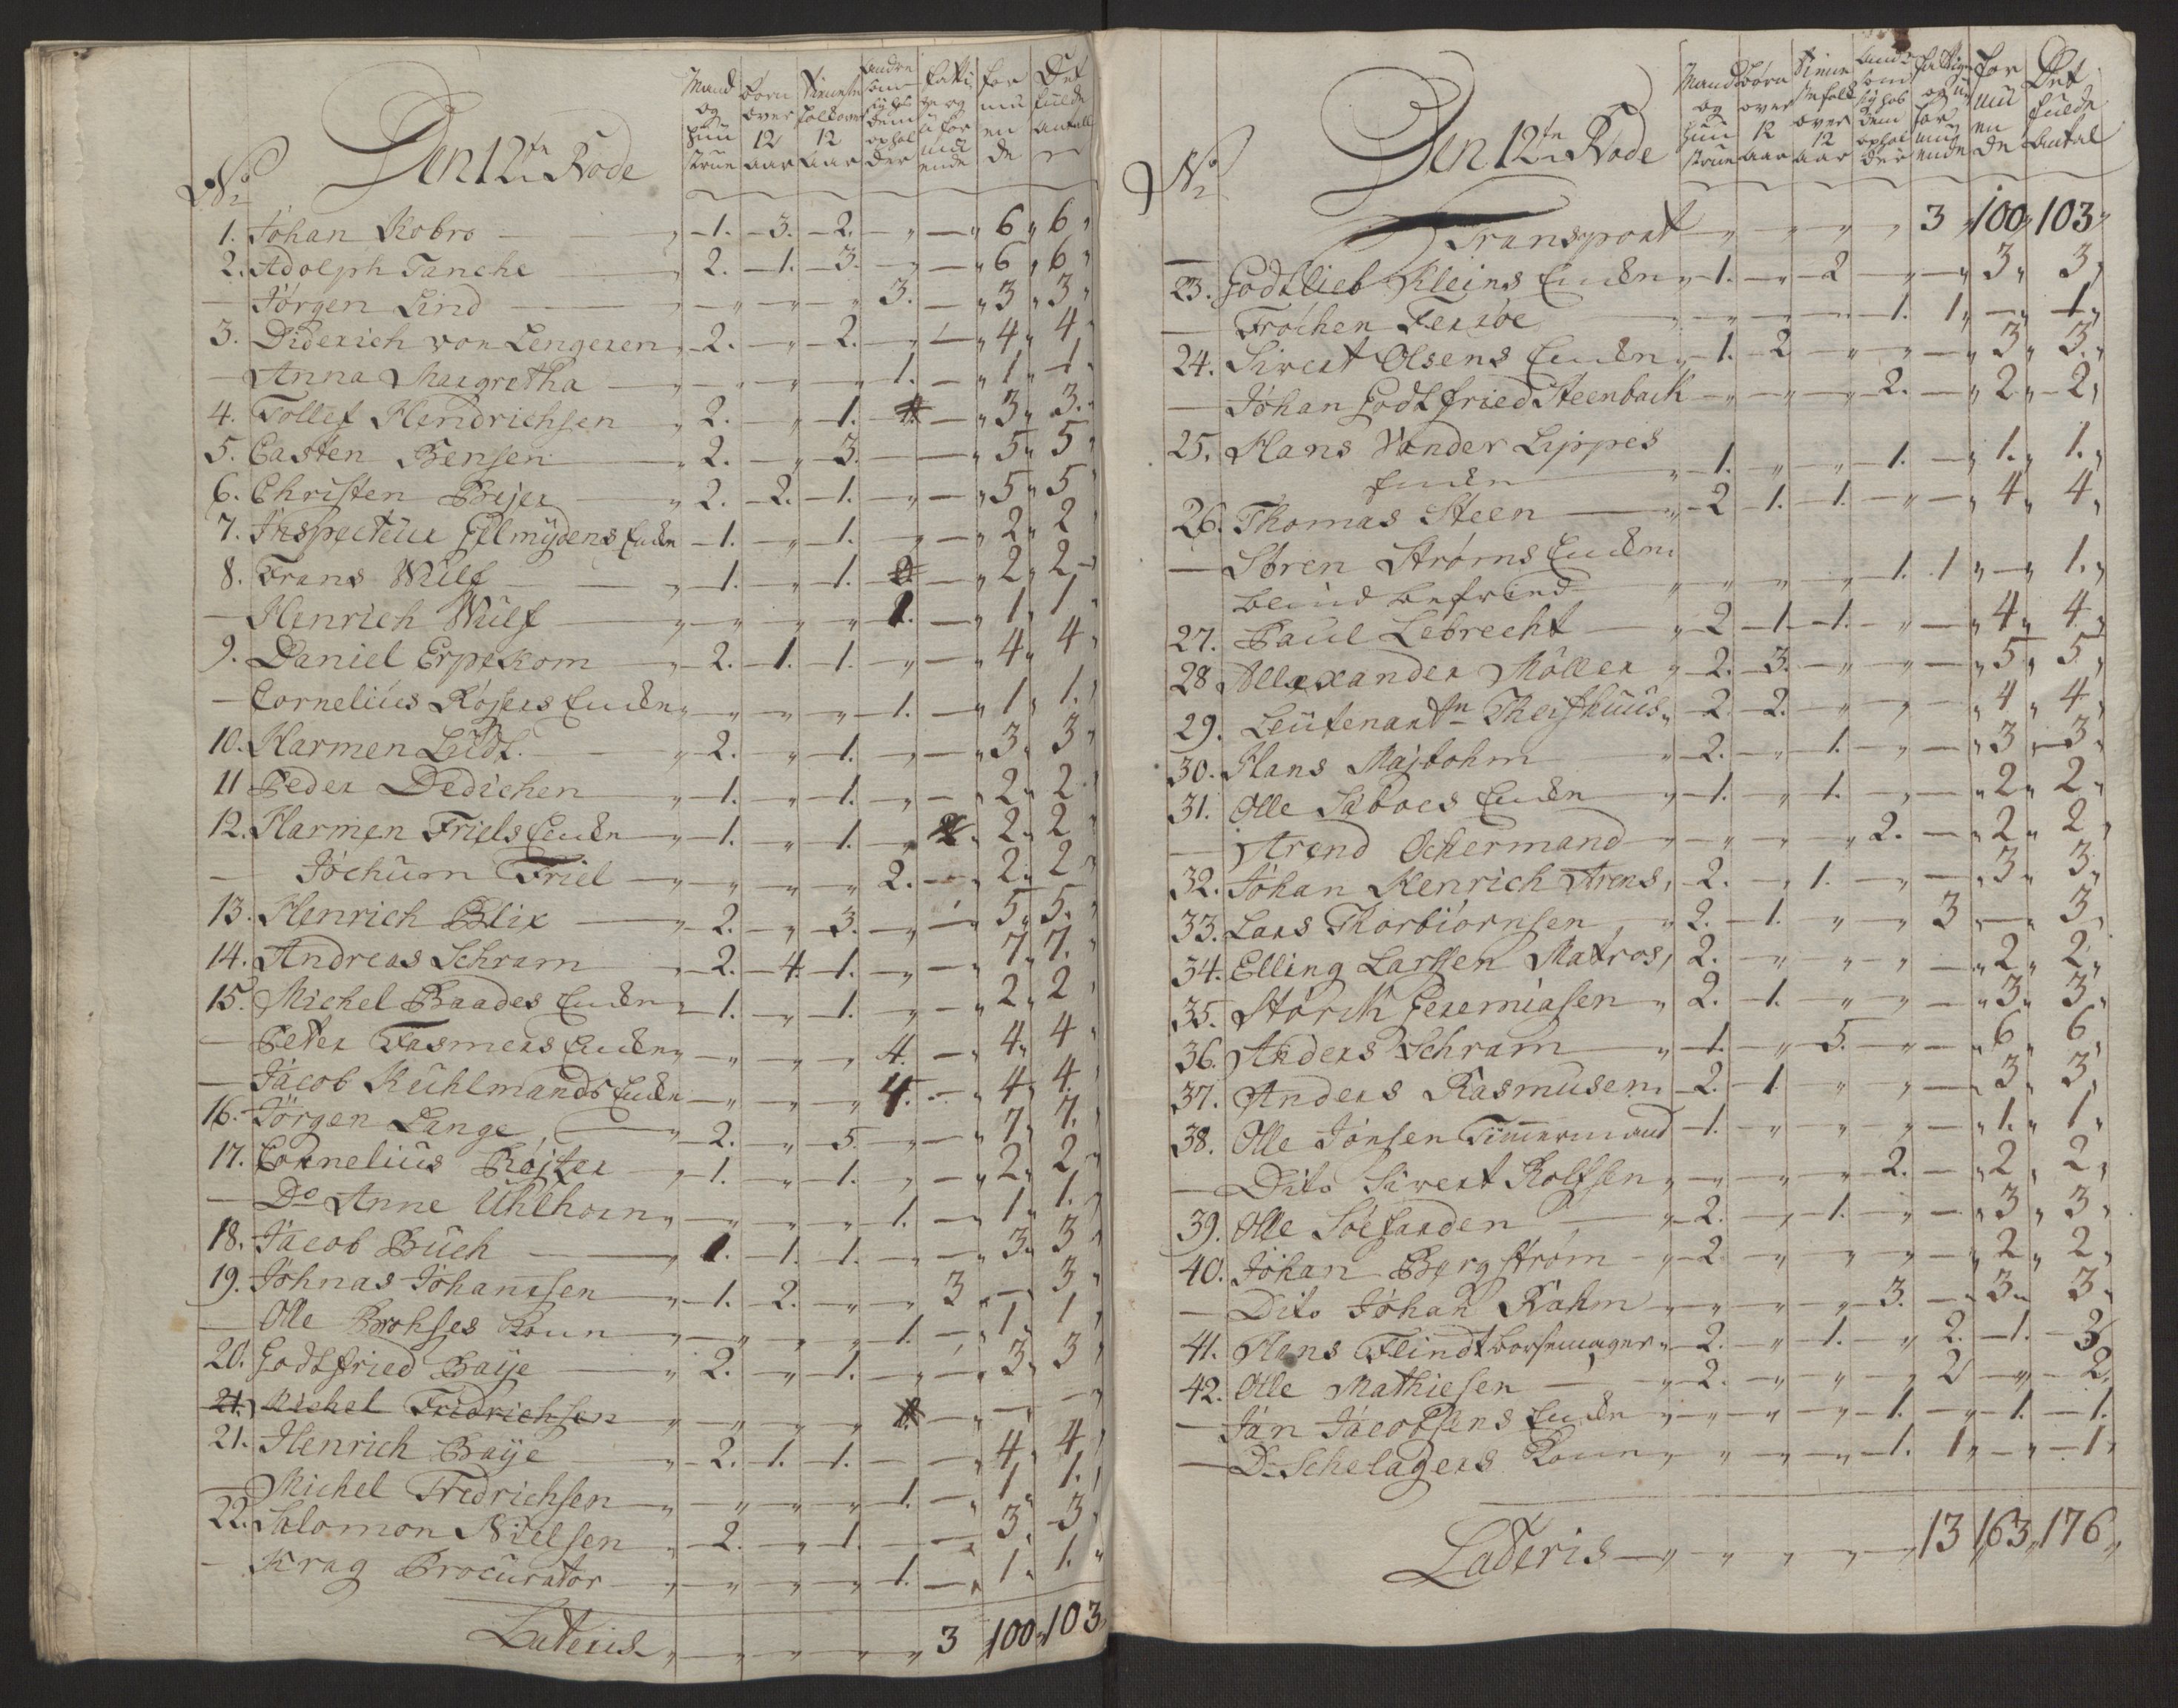 No
Den 12te Rode
Mand og Hustrue
Børn over 12 aar
Tieneste folk over 12 aar
andre som sig hos dem opholder
fatti: ge og uformuende
formuende
Det fulde antall
1. Johan Kobro " - 1. - 3. - 2. - " - " 6 " 6 "
2. Adolph Tanche " 2. - 1. - 3. - " - " 6 " 6 "
- Jørgen Lind " - " - " - " 3. - " 3 " 3 "
3. Diderich von Lengeren " 2. - " - 2. - " - " 4 " 4 "
- Anna Margretha " - " - " - " 1. - " 1 " 1 "
4. Tollef Hendrichsen " 2. - " - 1. - " 3 " 3. "
5. Casten Bensen " 2. - " - 3. - " 5 " 5 "
6. Christen Beyer " 2. - 2. - 1. - " - " 5 " 5 "
7. Inspecteur Gelmÿdens Encke - 1. - " - 1. - " - " 2 " 2 "
8. Frans Wulf " - 1. - " - 1. - " 2 " 2 "
- Henrich Wulf " - " - " - " 1. - " 1 " 1 "
9. Daniel Erpekom " - 2. - 1. - 1. - " - " 4 " 4 "
- Cornelius Røyers Encke " - " - " - " 1. - " 1 " 1. "
10. Harmen Lüdt. " 2. - " - 1. - " - " 3 " 3 "
11 Peder Dedichen " - 1. - " - 1. - " - " 2 " 2 "
12. Harmen Friels Encke " - 1. - " - 1. - " 2 " 2 "
- Jochum Friel " - " - " - " 2. - " 2 " 2 "
13. Henrich Blix " 2. - " - 3. - " - " 5 " 5. "
14. Andreas Schram " - 2. - 4. - 1. - " - " 7 " 7. "
15. Michel Baades Encke " 1. - " - 1. - " - " 2 " 2 "
- Peter Fasmers Encke " - " - " - " 4. - " 4 " 4 "
- Jacob Kühlmands Encke - " - " - " 4. - " 4 " 4. "
16. Jörgen Lange " - 2. - " - 5. - " - " 7 " 7. "
17. Cornelius Røyter " - 1. - " - 1. - " - " 2 " 2 "
- Do Anne Uhlhorn " - " - " - " 1. - " 1 " 1. "
18. Jacob Büch " 1. - 1. - 1. - " - " 3 " 3 "
19. Johnas Johannsen " - 1. - 2. - " - " 3 " - 3 "
- Olle Brohses Koun " - " - " - " 1. - " 1 " 1 "
20. Godtfried Baije " 2. - " - 1. - " - " 3 " 3 "
21. Michel Fridrichsen " - " - " - " - "
21. Henrich Baije " - 2. - 1. - 1. - " 4 " 4 "
Michel Fredrichsen " - " - " - " 1. - " 1 " 1. "
22. Salomon Nielsen " - 2. - " - 1. - " 3 " 3 "
- Krag Procurator " - " - " - " 1. - " 1 " 1. "
Lateris " - " - " - " - " 3 100 " 103 "
No
Den 12te Rode
Mand og Hustrue
Børn over 12 aar
Tieneste folk over 12 aar
andre som sig hos dem opholder
fattige og uformuende
formuende
Det fulde Antal
Transport " - " - " - " 3 " 100 " 103 "
23. Godtlieb Kleins Encke " - 1. - " - 2 - " - " 3 " 3 "
- Frøchen Ferrøe " - " - " - " 1. 1 " - " 1 "
24. Sivert Olsens Encke " - 1. - 2 - " - " - " 3 " 3. "
- Johan Godtfried Steenback - " - " - " 2. - " 2 " - 2 "
25. Hans Vonder Lippes
Encke " - 1. - " - " - 1. - " 1. " 1. "
26. Thomas Steen " - 2 - 1. - 1. - " - " 4 " 4 "
- Søren Strøms Encke
" - " - " - " 1. 1 " - " 1. "
27. Paul Lebrecht " 2 - 1. - 1. - " - " 4 " 4 "
28 Allexander Møller " - 2. - 3. - " - " - " 5 " 5 "
29. Leutenantn Theishuus " - 2. - 2. - " - " - " 4 " 4 "
30. Hans Majbohm " - 2. - " - 1. - " - " 3 " - 3 "
31. Olle Saboes Encke " - 1. - " - 1. - " - " 2 " 2 "
- Arend Ockermand " - " - " - " 2. - " 2 " 2 "
32. Johan Henrich Arens " - 2. - " 1. - " - " 3 " 3 "
33. Lars Thorbiørnsen " - 2. - 1. " " 3 - " 3 "
34. Elling Larssen Matros " 2. - " - " - " - " 2 " 2 "
35. Størck Geremiasen " 2. - 1. - " - " - " 3 " 3 "
36. Anders Schram " - 1. - " - 5. - " - " 6 " 6 "
37. Anders Rasmusen - 2. - 1. " " - " 3 " 3 "
38. Olle Jonsen Timmermand - 1. - " - " - " - " 1. " 1 "
- Dito Sivert Rolfsen " - " - " - " 2. - " 2 " 2 "
39. Olle Søefarden " - 2. - " - 1. - " - " 3 " 3 "
40. Johan Bergstrøm - " - 2 - " - " - " - " 2 " 2 "
- Dito Johan Rahm " - " - " - " 3. - " 3 " 3 "
41. Hans Flindt " - 2. - " - 1. - " 2. - 1. - 3
42. Olle Mathiesen " - 2. - " - " - " 2 - " - 2 "
- Jan Jacobsens Encke " - " - " - " 1. - " 1. - 1.
- Do Schelagers Koun " - " - " - " 1. 1 " - " 1 "
Lateris " - " - " - " - " 13 163 " 176 "